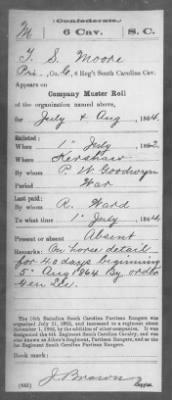 Confederate.
M 6 Cav. S. C.
T. S. Moore
Pri., Co. G, 6 Reg't South Carolina Cav.
Appears on
Company Muster Roll
of the organization named above,
for July & Aug, 1864.
Enlisted:
When 1" July, 1862
Where Kershaw
By whom P. W. Goodwyn
Period War
Last paid:
By whom R. Ward
To what time 1" July, 1864.
Present or absent Absent
Remarks: On horse detail
for 40 days beginning
5" Aug 1864 By ord to
Gen Lee.
The 16th Battalion South Carolina Partisan Rangers was
organized July 21, 1862, and increased to a regiment about
November 1, 1862, by the addition of other companies. It was
designated the 6th Regiment South Carolina Cavalry, and was
also known as Aiken's Regiment, Partisan Rangers, and as the
1st Regiment South Carolina Partisan Rangers.
Book mark:
J. Brown
(642) Copyist.